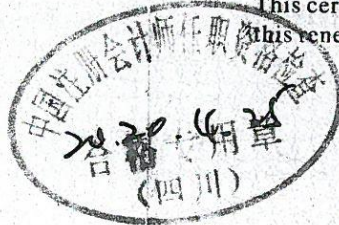 This cer
this rene
中国注册会计师任职资格检查
20.20.4.28
合格专用章
(四川)